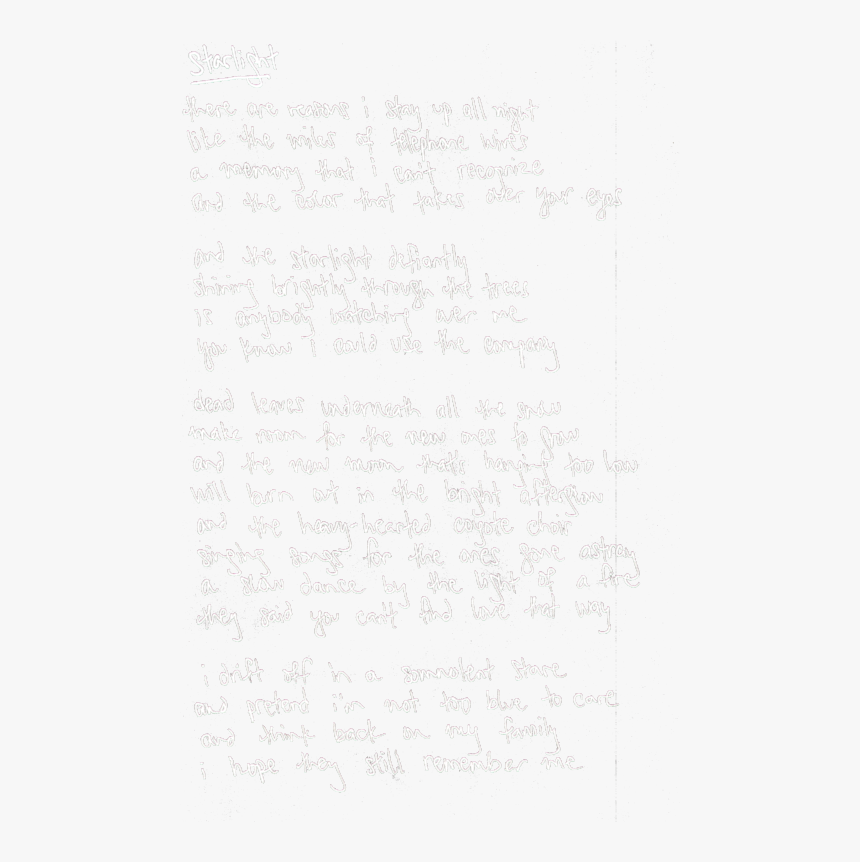 Starlight
there are reasons i stay up all night
like the miles of telephone wires
a memory that i can't recognize
and the color that takes over your eyes
and the starlight defiantly
shining brightly through the trees
is anybody watching over me
you know i could use the company
dead leaves underneath all the snow
make room for the new ones to grow
and the new moon that's hanging too low
will burn out in the bright afterglow
and the heavy-hearted coyote choir
singing songs for the ones gone astray
a slow dance by the light of a fire
they said you can't find love that way
i drift off in a somnolent stare
and pretend i'm not too blue to care
and think back on my family
i hope they still remember me